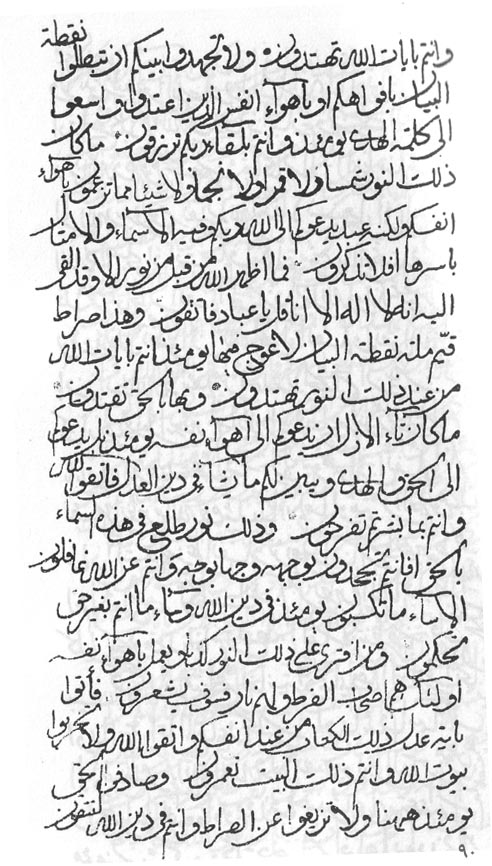 نقطة
وانتم بايات الله تهتدون ولا تجهدوا بينكم ان تبطلوا
البيان بافواهكم او باهواء انفس الذين اعتدوا واسعوا
الى كلمة الهدى يومئذ وانتم بلقاء ربكم ترزقون ما كان
ذلك النور شمسا ولا قمرا ولا نجما ولا شيئا مما تزعمون باهواء
انفسكم ولكنه عبد يدعوكم الى الله ربكم وفيه الاسماء والامثال
باسرها افلا تذكرون فما اظهر الله من قبل من نور الا وقد القى
اليه انه لا اله الا انا قل يا عباد فاتقون وهذا صراط
قيم ملة نقطة البيان لا عوج فيها يومئذ انتم بايات الله
من عند ذلك النور تهتدون وبها بالحق تقتدون
ما كان ثاء الازل ان يدعوكم الى اهواء نفسه يومئذ بل يدعوكم
الى الحق والهدى ويبين لكم ما يشاء في دين العدل فاتقوا الله
وانتم بما بشرتم تفرحون وذلك نور طلع في هذه السماء
بالحق افانتم تجحدون بوجهه وجها بوجه وانتم عن الله غافلون
الا ساء ما تكسبون يومئذ في دين الله وساء ما انتم بغير حق
تحكمون ومن افترى على ذلك النور كذبا ويعمل باهواء نفسه
اولئك هم اصحاب الفرط ولهم نار فسوف تشعرون فأتوا
باية عدل ذلك الكتاب من عند انفسكم واتقوا الله ولا تخربوا
بيوت الله وانتم ذلك البيت تعمرون وصادق الحق
يومئذ ههنا ولا تزيغوا عن الصراط وانتم في دين الله لتتقون
٩٠